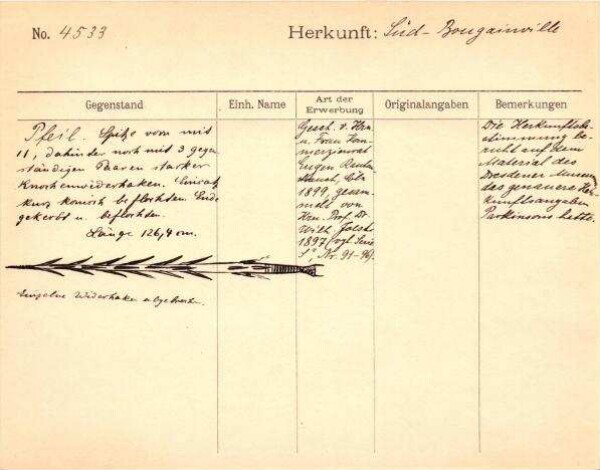 No. 4533
Herkunft: Süd-Bougainville
Gegenstand
Einh. Name
Art der Erwerbung
Originalangaben
Bemerkungen
Pfeil. Spitze vorn mit
11, dahinter noch mit 3 gegen
ständigen Paaren starker
Knochenwiderhaken. Einsatz
kurz konisch beflochten. Ende
gekerbt u. beflochten.
Länge 126,4 cm.
Einzelne Widerhaken abgebrochen.
Gesch. v. Hrn
u. Frau Kom-
merzienrat
Eugen Rauten-
strauch, Cöln
1899, gesam-
melt von
Hrn. Prof. Dr.
Wilh. Joest
1897 (vgl.
Nr. 91-96).
Die Herkunftsbe-
stimmung be-
ruht auf dem
Material des
Dresdener Museums
des genauere Her-
kunftsangaben
Parkinsons hatte.